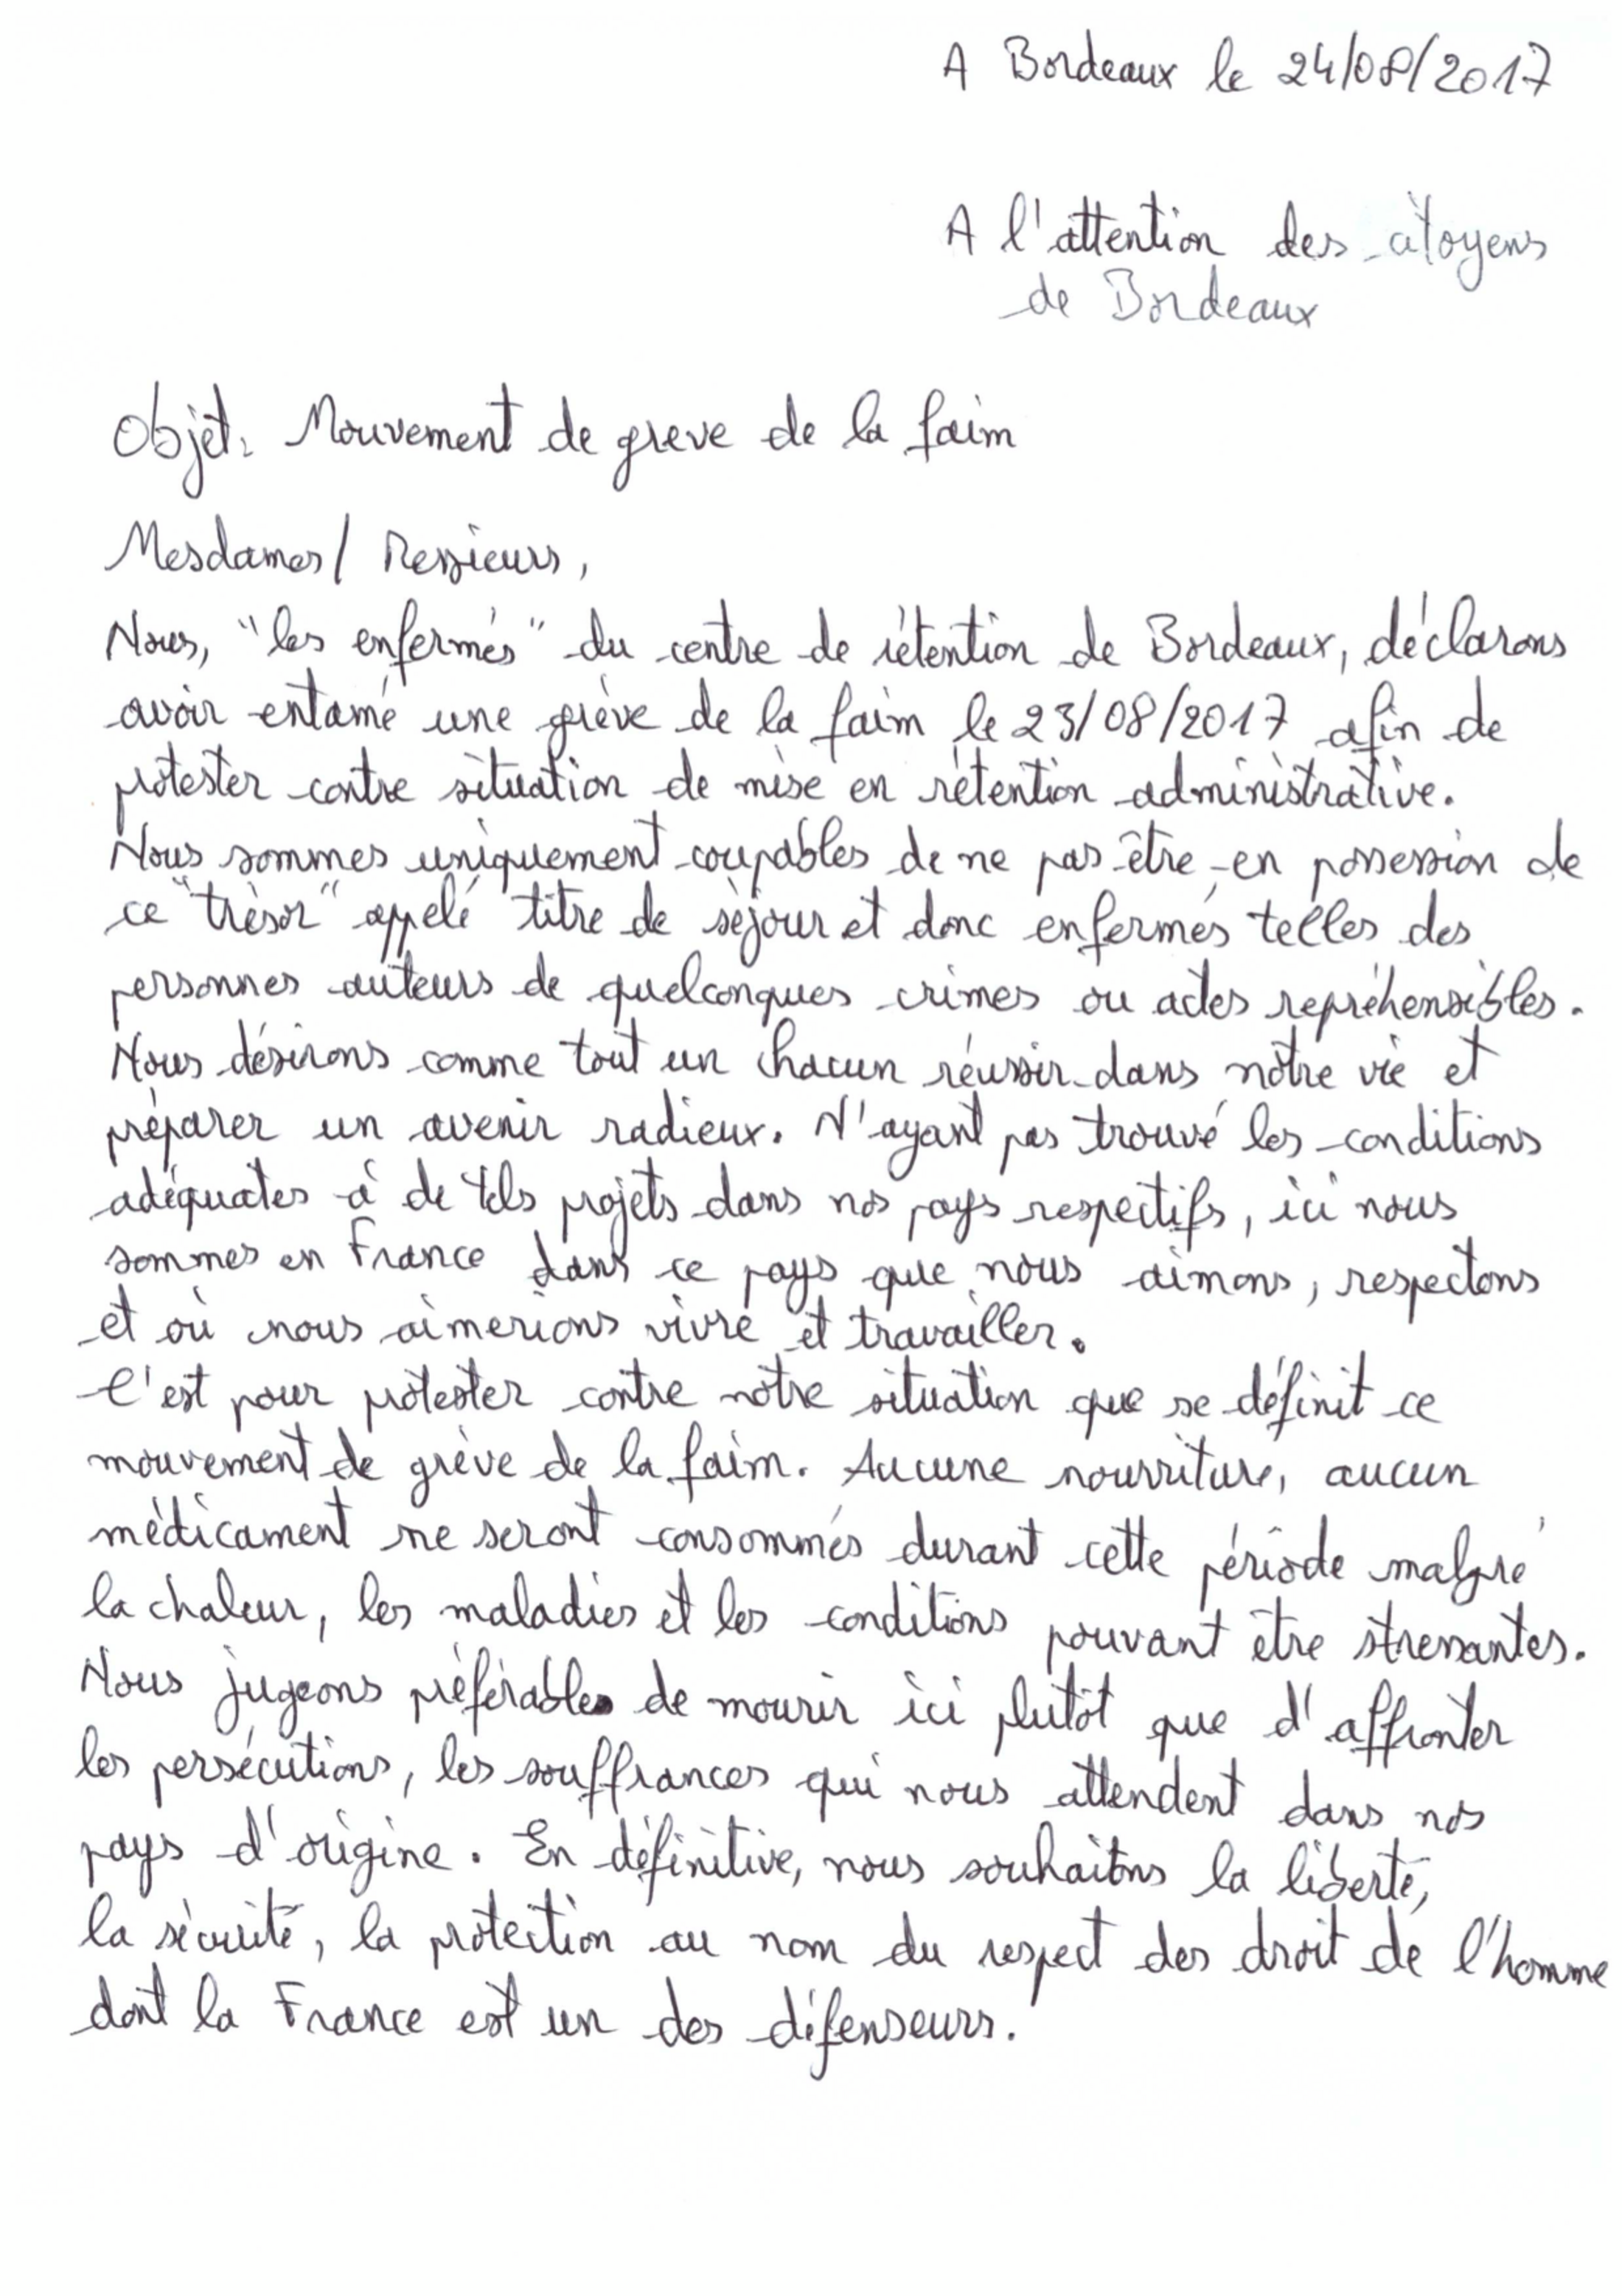 A Bordeaux le 24/08/2017
A l'attention des citoyens
de Bordeaux
Objet: Mouvement de greve de la faim
Mesdames/ Messieurs,
Nous, "les enfermés" du centre de rétention de Bordeaux, déclarons
avoir entamé une grève de la faim le 23/08/2017 afin de
protester contre situation de mise en rétention administrative.
Nous sommes uniquement coupables de ne pas être en possession de
ce "trésor" appelé titre de séjour et donc enfermés telles des
personnes auteurs de quelconques crimes ou actes repréhensibles.
Nous désirons comme tout un chacun réussir dans notre vie et
préparer un avenir radieux. N'ayant pas trouvé les conditions
adéquates à de tels projets dans nos pays respectifs, ici nous
sommes en France dans ce pays que nous aimons, respectons
et où nous aimerions vivre et travailler.
C'est pour protester contre notre situation que se définit ce
mouvement de grève de la faim. Aucune nourriture, aucun
médicament ne seront consommés durant cette période malgré
la chaleur, les maladies et les conditions pouvant être stressantes.
Nous jugeons préférables de mourir ici plutôt que d'affronter
les persécutions, les souffrances qui nous attendent dans nos
pays d'origine. En définitive, nous souhaitons la liberté,
la sécurité, la protection au nom du respect des droit de l'homme
dont la France est un des défenseurs.